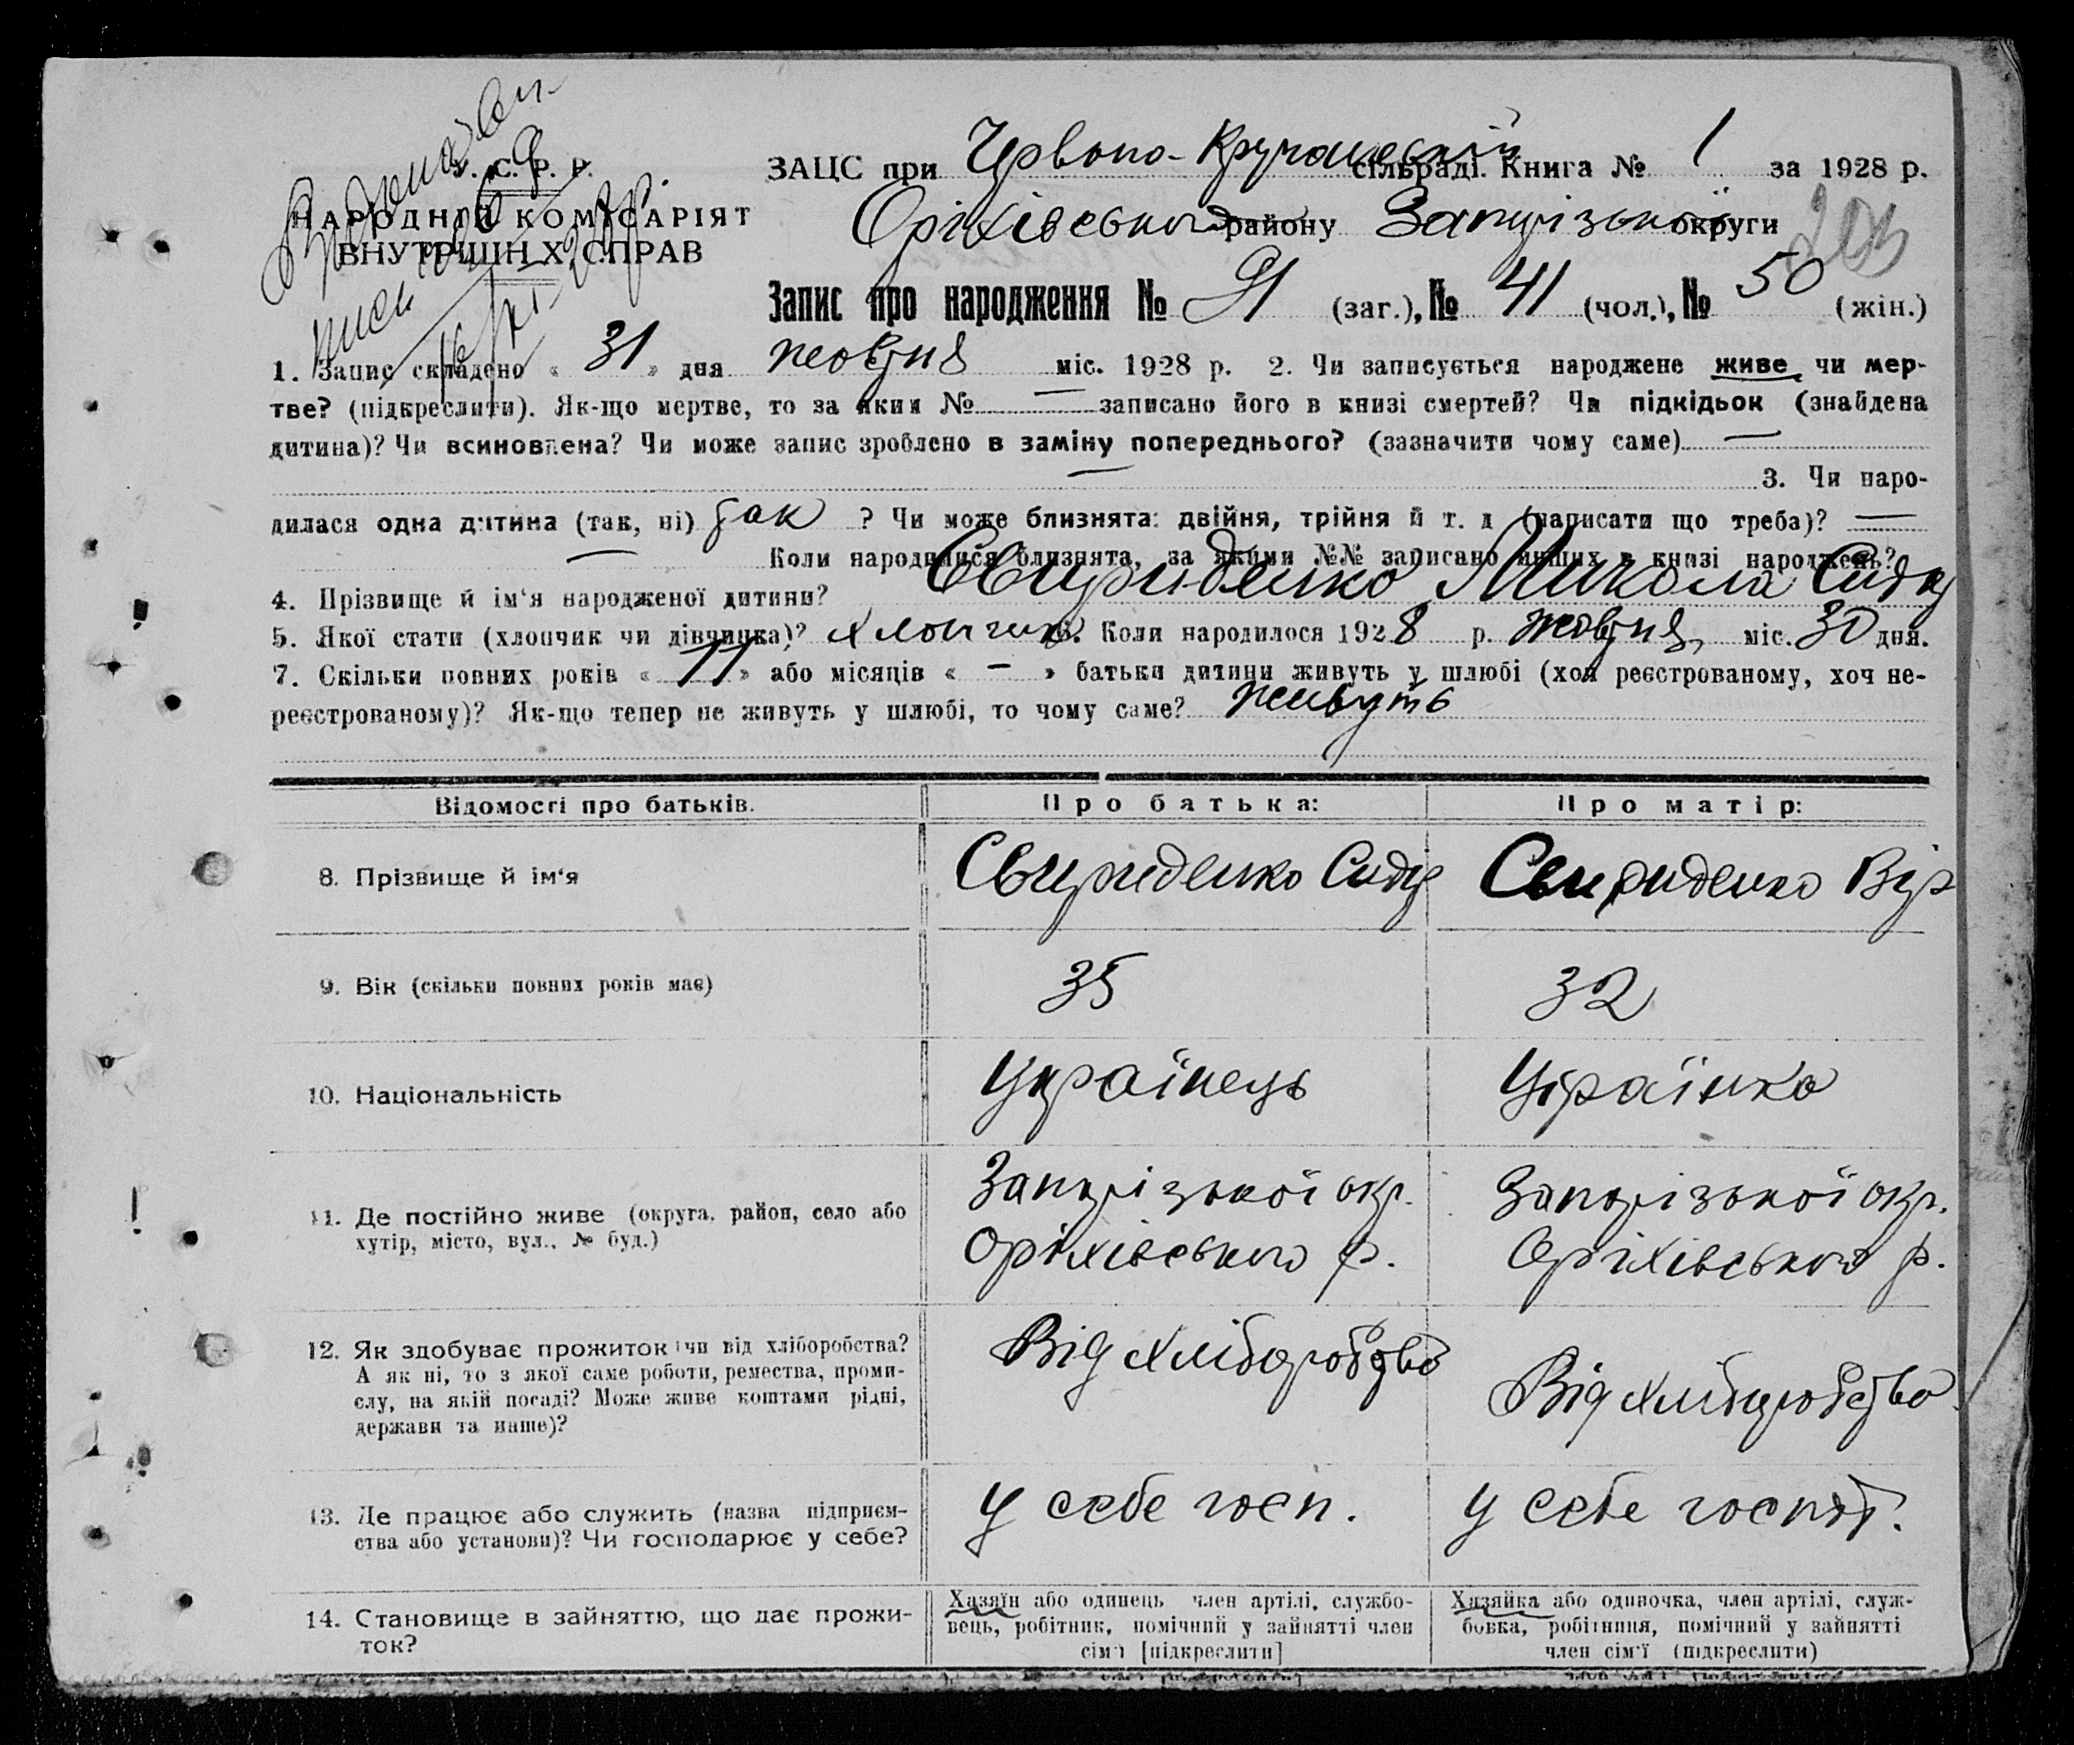 У. С. Р. Р.
НАРОДНІЙ КОМІСАРІЯТ
ВНУТРІШНІХ СПРАВ
ЗАЦС при Червоно-Кручанській сільраді. Книга № 1 за 1928 р.
Оріхівського району Запорізької округи
Запис про народження № 91 (заг.), № 41 (чол.), № 50 (жін.)
1. Запис складено « 31 » дня жовтня міс. 1928 р. 2. Чи записується народжене живе чи мер-
тве? (підкреслити). Як-що мертве, то за яким № — записано його в книзі смертей? Чи підкідьок (знайдена
дитина)? Чи всиновлена? Чи може запис зроблено в заміну попереднього? (зазначити чому саме) —
— 3. Чи наро-
дилася одна дитина (так, ні) так ? Чи може близнята: двійня, трійня й т. д (написати що треба)? —
— Коли народилися близнята, за якими №№ записано инших в книзі народжень?
4. Прізвище й ім‘я народженої дитини? Свириденко Микола Сидор
5. Якої стати (хлопчик чи дівчинка)? хлопчик 6. Коли народилося 1928 р. жовтня міс. 30 дня.
7. Скільки повних років « 11 » або місяців « — » батьки дитини живуть у шлюбі (хоч реєстрованому, хоч не-
реєстрованому)? Як-що тепер не живуть у шлюбі, то чому саме? живуть
Відомості про батьків. Про батька: Про матір:
8. Прізвище й ім‘я Свириденко Сидор Свириденко Вір
9. Вік (скільки повних років має) 35 32
10. Національність Українець Українка
11. Де постійно живе (округа, район, село або
хутір, місто, вул., № буд.)
Запорізької окр.
Оріхівського р.
Запорізької окр.
Оріхівського р.
12. Як здобуває прожиток (чи від хліборобства?
А як ні, то з якої саме роботи, ремества, проми-
слу, на якій посаді? Може живе коштами рідні,
держави та инше)?
Від хліборобства
Від хліборобства
13. Де працює або служить (назва підприєм-
ства або установи)? Чи господарює у себе?
У себе госп.
У себе господ.
14. Становище в зайняттю, що дає прожи-
ток?
Хазяїн або одинець член артілі, службо-
вець, робітник, помічний у зайнятті член
сім‘ї [підкреслити]
Хазяйка або одиночка, член артілі, служ-
бовка, робітниця, помічний у зайнятті
член сім‘ї (підкреслити)